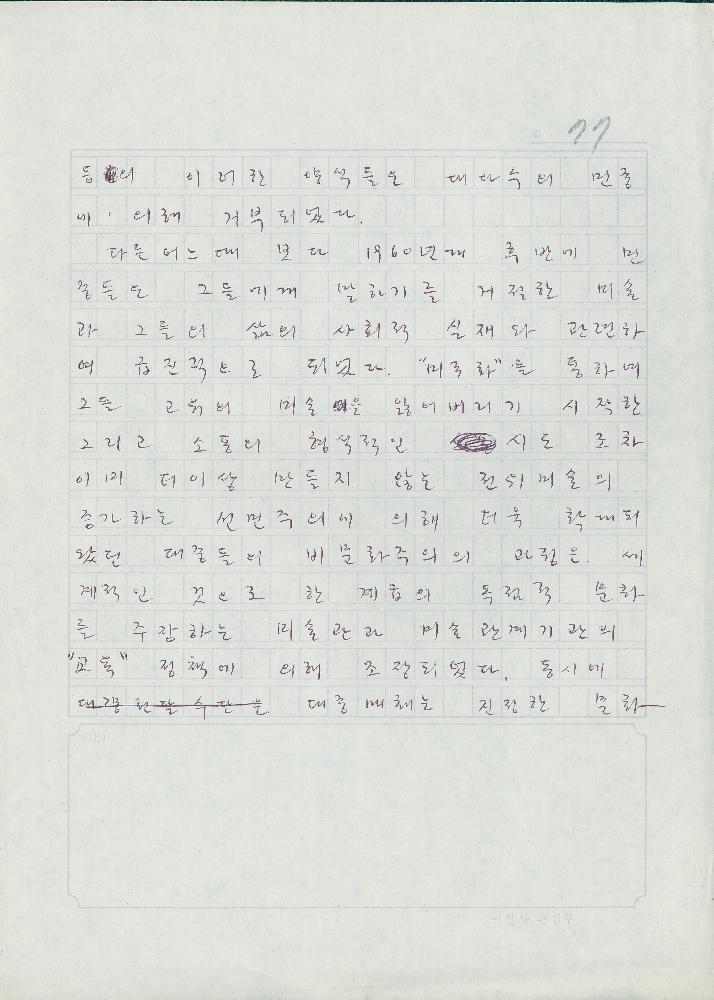 77
등의 이러한 양식들은 대다수의 민중
에 의해 거부되었다.
다른 어느 때 보다 1960년대 후반에 민
중들은 그들에게 말하기를 거절한 미술
과 그들의 삶의 사회적 실재와 관련하
여 급진적으로 되었다. "미국화"를 통하여
그들 고유의 미술을 잃어버리기 시작한
그리고 소통의 형식적인 시도 조차
이미 더이상 만들지 않는 전위미술의
증가하는 선면주의에 의해 더욱 확대되
왔던 대중들의 비문화주의의 과정은. 세
계적인 것으로 한 계급의 독점적 문화
를 주장하는 미술관과 미술관계기관의
"교육" 정책에 의해 조장되었다. 동시에
대중전달수단은 대중매체는 진정한 문화